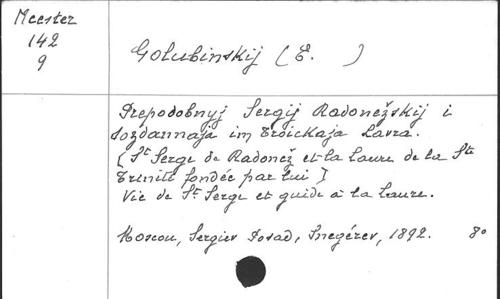 Meester
142
9
Golubinskij (E. )
Prepodobnyj Sergij Radonežskij i
sozdannaja im Troickaja Lavra.
[St Serge de Radonež et la Laure de la Ste
Trinité fondée par lui]
Vie de St Serge et guide à la Laure.
Moscou, Sergiev Posad, Snegérev, 1892. 8o